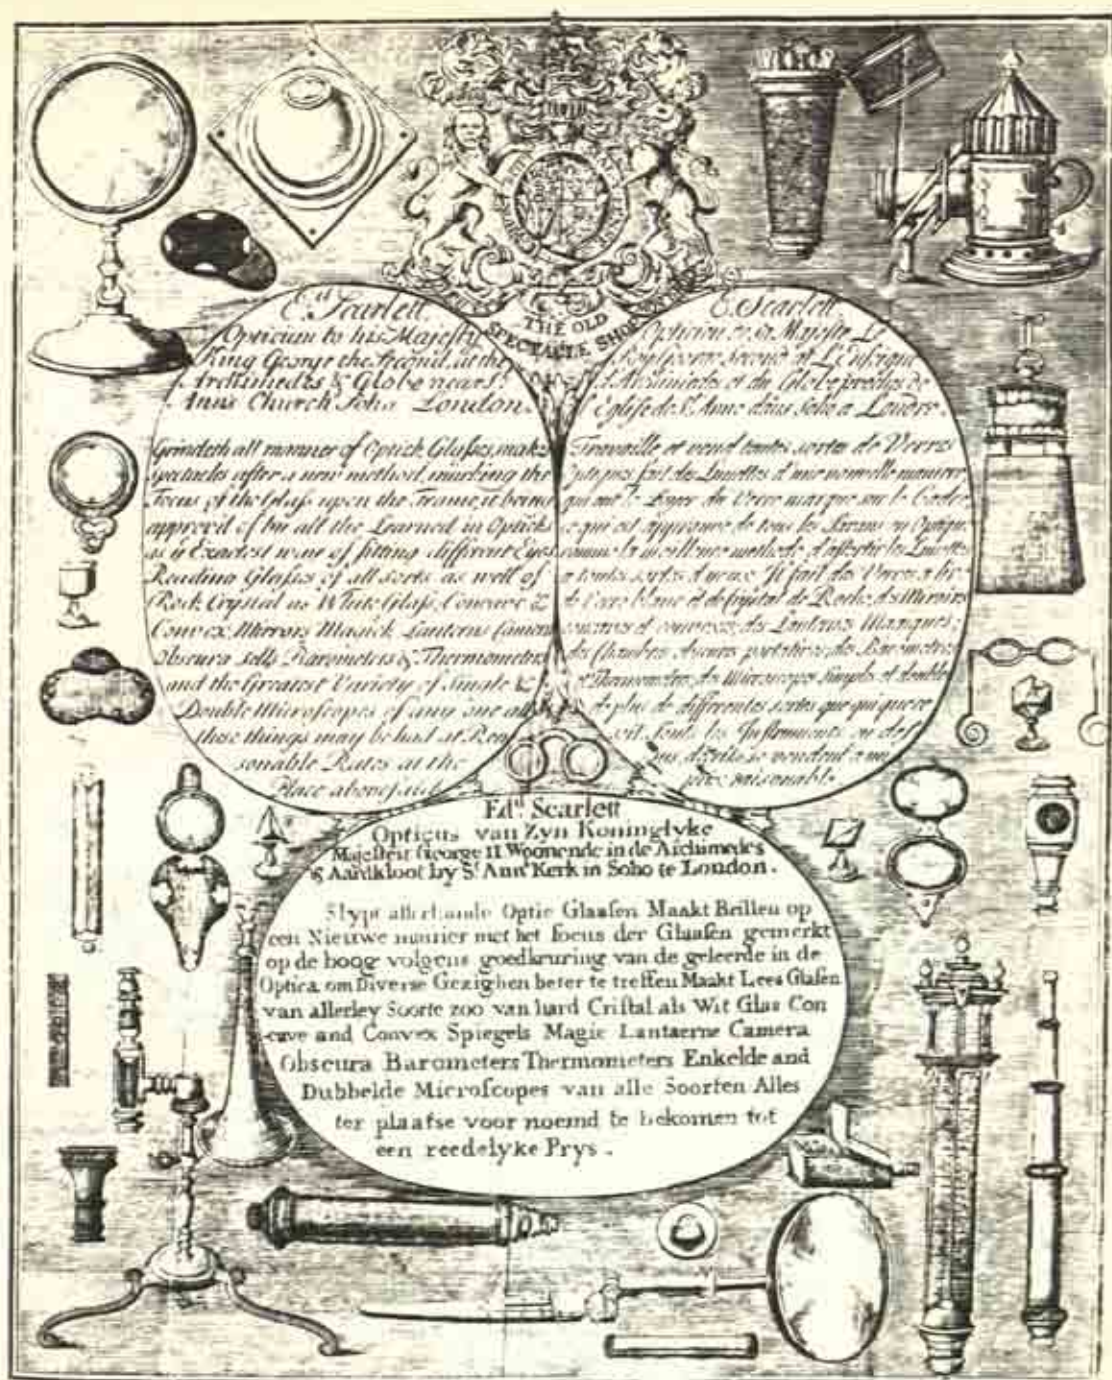 THE OLD
SPECTACLE SHOP
Ed. Scarlett
Optician to his Majesty
King George the Second, at the
Archimedes & Globe near St.
Ann's Church Soho London.
Grindeth all manner of Optick Glasses, makes
spectacles after a new method, marking the
Focus of the Glass upon the Frame, it being
approv'd of by all the Learned in Opticks
as ye Exactest way of fitting different Eyes
Reading Glasses of all sorts as well of
Rock Crystal as White Glass, Concave &
Convex Mirrors Magick Lanterns Camera
Obscura sells Barometers & Thermometers
and the Greatest Variety of Single &
Double Microscopes of any one all
these things may be had at Rea
sonable Rates at the
Place abovesaid
E. Scarlett
Opticien de sa Majesté Le
Roy George Second at L'Enseigne
d'Archimedes et du Globe
l'Eglise de St. Anne dans Soho a Londre.
Travaille et vend toutes sortes de Verres
fait des Lunettes d'une nouvelle maniere
qui ont le Foyer du Verre marque sur le
ce qui est approuvé de tous les Savans en Optique
comme la meilleure methode d'assortir les Lunettes
a toutes sortes d'yeux. Il fait des Verres a lire
de Verre blanc et de Crystal de Roche, des Miroirs
concaves et convexes, des Lanternes Magiques,
des Chambres obscures portatives, des Barometres
et Thermometres, des Microscopes simples et doubles
de plus de differentes sortes que qui que ce
soit. Touts les Instruments
se vendent a un
prix raisonable
Edd. Scarlett
Opticus van Zyn Koninglyke
Majesteit George II. Woonende in de Archimedes
& Aardkloot by St. Anns Kerk in Soho te London.
Slypt allerhande Optic Glaasen Maakt Brillen op
een Nieuwe manier met het focus der Glaasen gemerkt
op de boog volgens goedkeuring van de geleerde in de
Optica om Diverse Gezighen beter te treffen Maakt Lees Glasen
van allerley Soorte zoo van hard Cristal als Wit Glas Con
cave and Convex Spiegels Magic Lantaerne Camera
Obscura Barometers Thermometers Enkelde and
Dubbelde Microscopes van alle Soorten Alles
ter plaatse voor noemd te bekomen tot
een reedelyke Prys.